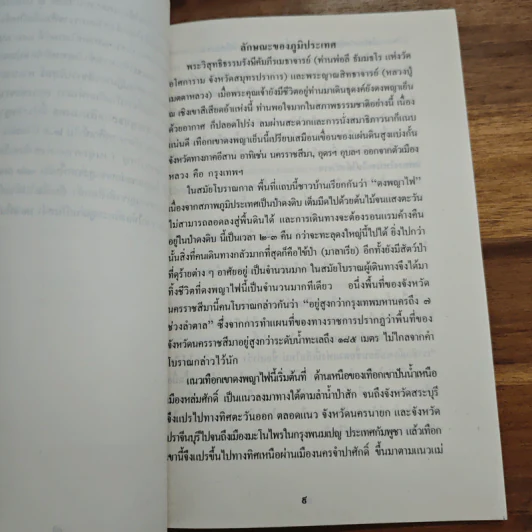 ลักษณะของภูมิประเทศ
พระวิสุทธิธรรมรังษีคัมภีรเมธาจารย์ (ท่านพ่อลี ธัมมธโร แห่งวัด
อโศการาม จังหวัดสมุทรปราการ) และพระญาณสิทธาจารย์ (หลวงปู่
เมตตาหลวง) เมื่อพระคุณเจ้ายังมีชีวิตอยู่ท่านมาเดินธุดงค์ยังดงพญาเย็น
ณ เชิงเขาสีเสียดอ้าแห่งนี้ ท่านพอใจมากในสภาพธรรมชาติอย่างนี้ เนื่อง
ด้วยอากาศ ก็ปลอดโปร่ง ลมผ่านสะดวกและการนั่งสมาธิภาวนาก็แนบ
แน่นดี เทือกเขาดงพญาเย็นนี้เปรียบเสมือนเขื่อนของแผ่นดินสูงแบ่งกั้น
จังหวัดทางภาคอีสาน อาทิเช่น นครราชสีมา, อุดรฯ อุบลฯ ออกจากตัวเมือง
หลวง คือ กรุงเทพฯ
ในสมัยโบราณกาล พื้นที่แถบนี้ชาวบ้านเรียกกันว่า “ดงพญาไฟ”
เนื่องจากสภาพภูมิประเทศเป็นป่าดงดิบ เต็มมืดไปด้วยต้นไม้จนแสงตะวัน
ไม่สามารถลอดลงสู่พื้นดินได้ และการเดินทางจะต้องรอนแรมค้างคืน
อยู่ในป่าดงดิบ นี้เป็นเวลา ๒-๓ คืน กว่าจะทะลุดงใหญ่นี้ไปได้ ยิ่งไปกว่า
นั้นสิ่งที่คนเดินทางกลัวมากที่สุดก็คือไข้ป่า (มาลาเรีย) อีกทั้งยังมีสัตว์ป่า
ที่ดุร้ายต่าง ๆ อาศัยอยู่ เป็นจำนวนมาก ในสมัยโบราณผู้เดินทางจึงได้มา
ทิ้งชีวิตที่ดงพญาไฟนี้เป็นจำนวนมากทีเดียว อนึ่งพื้นที่ของจังหวัด
นครราชสีมานี้คนโบราณกล่าวกันว่า “อยู่สูงกว่ากรุงเทพมหานครถึง ๗
ช่วงลำตาล” ซึ่งจากการทำแผนที่ของทางราชการปรากฏว่าพื้นที่ของ
จังหวัดนครราชสีมาอยู่สูงกว่าระดับน้ำทะเลถึง ๑๘๕ เมตร ไม่ไกลจากคำ
โบราณกล่าวไว้นัก
แนวเทือกเขาดงพญาไฟนี้เริ่มต้นที่ ด้านเหนือของเทือกเขาปันน้ำเหนือ
เมืองหล่มศักดิ์ เป็นแนวลงมาทางใต้ตามลำน้ำป่าสัก จนถึงจังหวัดสระบุรี
จึงแปรไปทางทิศตะวันออก ตลอดแนว จังหวัดนครนายก และจังหวัด
ปราจีนบุรีไปจนถึงเมืองมะโนไพรในกรุงพนมเปญ ประเทศกัมพูชา แล้วเทือก
เขานี้จึงแปรขึ้นไปทางทิศเหนือผ่านเมืองนครจำปาศักดิ์ ขึ้นมาตามแนวแม่
๕